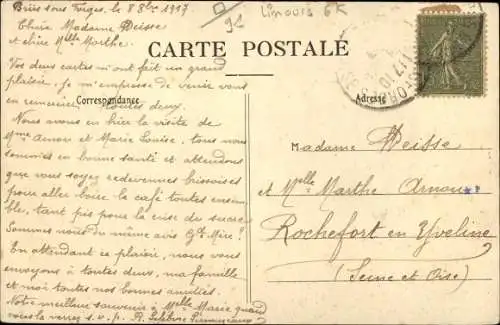 Briis sous Forges, le 8 8bre 1917
Limours 6K
91
Chère Madame Deisse
et chère Melle Marthe.
CARTE POSTALE
Vos deux cartes m'ont fait un grand
plaisir, je m'empresse de venir vous
en remercier toutes deux.
Correspondance
Adresse
Nous avons eu hier la visite de
Mme Arnou et Marie Louise, tous nous
sommes en bonne santé et attendons
que vous soyez redevenues briissoises
pour aller boire le café toutes ensem-
ble, tant pis pour la crise du sucre
Sommes nous du même avis Gde Mère!
En attendant ce plaisir, nous vous
envoyons à toutes deux, ma famille
et moi toutes nos bonnes amitiés.
Notre meilleur souvenir à Melle Marie quand
vous la verrez s.v.p. R. Lefebvre
Madame Deisse
et Melle Marthe Arnou
Rochefort en Yveline
(Seine et Oise)